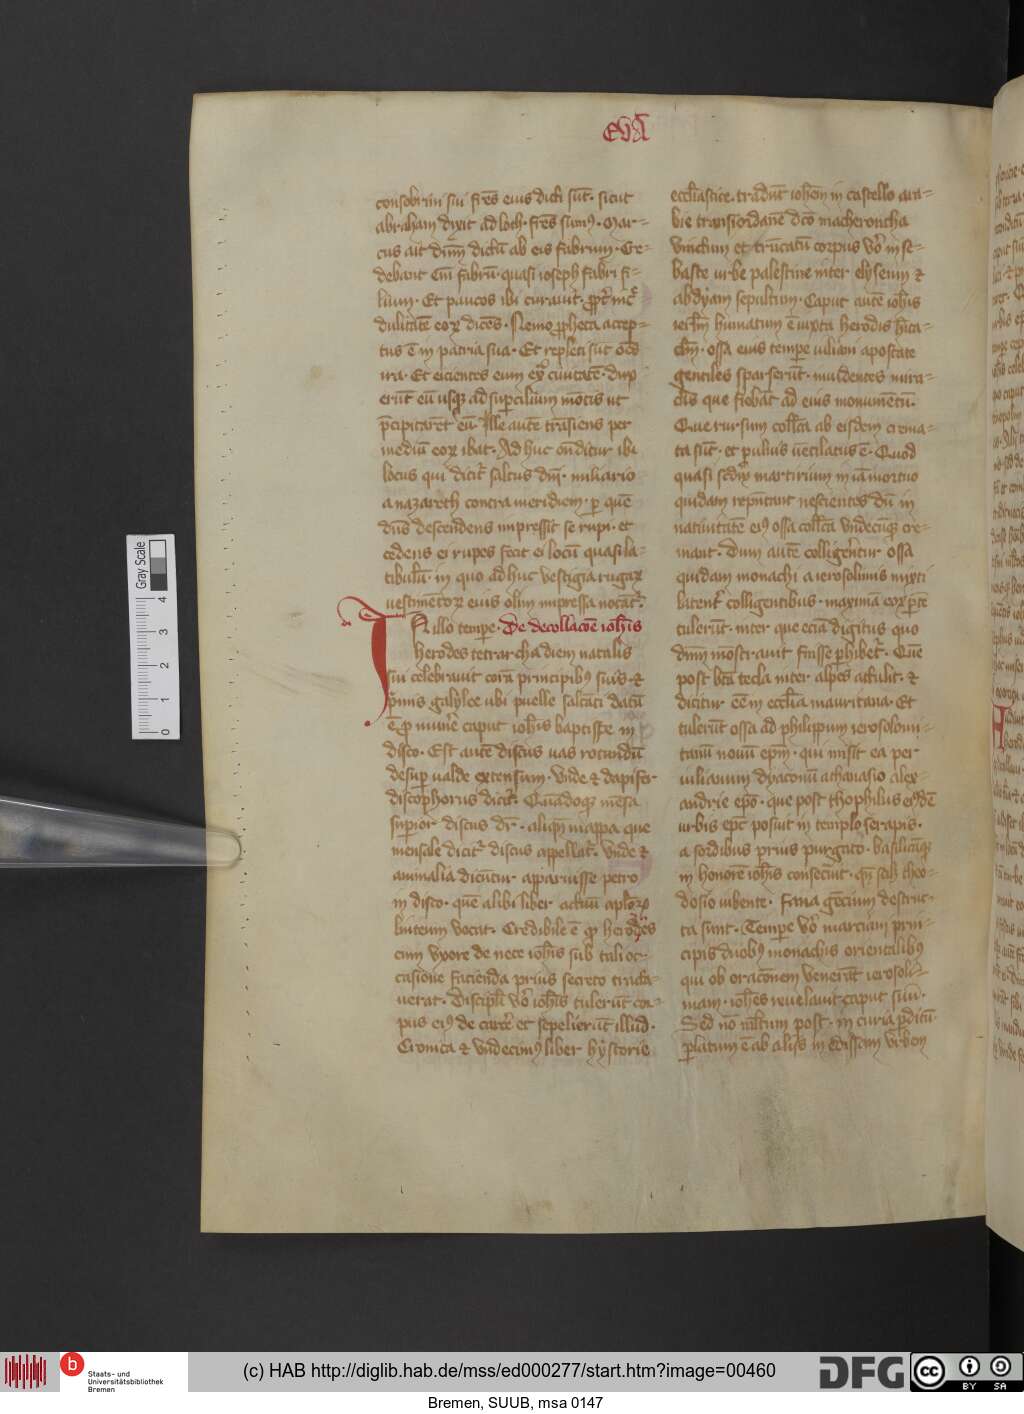 eva
consobrini sui fr̄es eius dicti sūt. sicut
abraham dyxit ad loth. fr̄es sumꝰ. Mar-
cus ait dn̄m dictū ab eis fabrum. Cre-
debant eni fabrū. quasi ioseph fabri fi-
lium. Et paucos ibi curauit. ꝓpt̄ inc̄
dulitatē eoꝝ dicēs. Nemo ꝓpheta accep-
tus ē in patria sua. Et repleti sūt oēs
ira. Et eicientes eum ex̄ ciuitatē. dux
erūt eū usqꝫ ad suꝑcilium mōtis ut
p̄cipitarēt eū. Ille autē trāsiens per
mediū eoꝝ ibat. Ad huc oñditur ibi
locus qui dicit̄ saltus dn̄i. miliario-
a nazareth contra meridiem. ꝑ quē
dn̄s descendens impressit se rupi. et
cedens ei rupes fecit ei locū quasi la-
tibulū. in quo ad huc vestigia rugaꝝ
uestimētoꝝ eius olim impressa notāt̄.
IN illo tempe. De decollacōe ioh̄is
herodes tetrarcha diem natalis
sui celebrauit corā principibꝰ suis. et
p̄mis galylee ubi puelle saltāti datū
ē ꝓ mun̄e caput ioh̄is baptiste in
disco. Est autē discus uas rotundū
desuꝑ ualde extensum. Vnde et dapifer
discophorus dicit̄. Quādoqꝫ mēsa
suꝑior discus dr̄. aliqn̄ mappa que
mensale dicit̄ discus appellat̄. Vnde et
animalia dicūtur apparuisse petro
in disco. quē alibi liber actuū aplōꝝ
linteum vocat. Credibile ē ꝙ herodes
cum vxore de nece ioh̄is sub tali oc-
casione facienda prius secreto tracta-
uerat. Discipl̄i v̄o ioh̄is tulerūt cor-
pus eiꝰ de carc̄e et sepelierūt illud.
Cronica et vndecimꝰ liber hystorie
eccl̄iastice. tradūt ioh̄em in castello ara-
bie transiordanē dc̄o macheroncha
vinctum et trūcatū corpus v̄o in se-
baste urbe palestine inter elyseum et
abdyam sepultum. Caput autē ioh̄is
ierl̄m humatum ē iuxta herodis hita-
cl̄m. ossa eius tempe iuliani apostate
gentiles sparserūt. inuidentes mira-
cl̄is que fiebāt ad eius monumētū.
Que rursum coll̄ca ab eisdem crema-
ta sūt. et ꝑ uluis uētilatus ē. Quod
quasi sedm̄ martirium in iā mortuo
quidam repn̄tant nescientes dū in
natiuitatē eiꝰ ossa coll̄ca vndecūqꝫ cre-
mant. Dum autē colligerētur ossa
quidam monachi a ierosolimis mixti
latent̄ colligentibus. maximā eoꝝ ꝑtē
tulerūt. inter que eciā digitus quo
dn̄m mōstrauit fuisse ꝑhibet̄. Quē
post btā tecla inter alpes attulit. et
dicitur eē in eccl̄ia mauritana. Et
tulerūt ossa ad philippum ierosolimi-
tanū nouū epm̄. qui misit ea per
iulianum dyaconū athanasio alex-
andrie epō. que post theophilus eiꝰdē
urbis epc̄ posuit in templo serapis.
a sordibus prius purgato. basilicāqꝫ
in honorē ioh̄is consecāuit. qn̄ scl̄z theo-
dosio iubente. fana gēcium destruc-
ta sunt. Tempe v̄o marciani prin-
cipis duobꝰ monachis orientalibꝰ
qui ob oracōnem venerāt ierosoli-
mam. ioh̄es reuelauit caput suū.
Sed nō ml̄tum post. in curia ꝑditū.
ꝑlatum ē ab aliis in edissam vrbem
Gray Scale
0 1 2 3 4
b
Staats- und
Universitätsbibliothek
Bremen
(c) HAB http://diglib.hab.de/mss/ed000277/start.htm?image=00460
DFG
cc BY SA
Bremen, SUUB, msa 0147